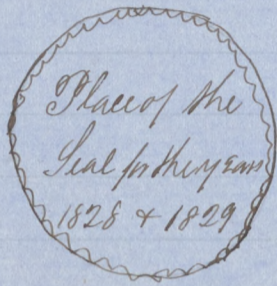 Place of the
Seal for the years
1828 & 1829